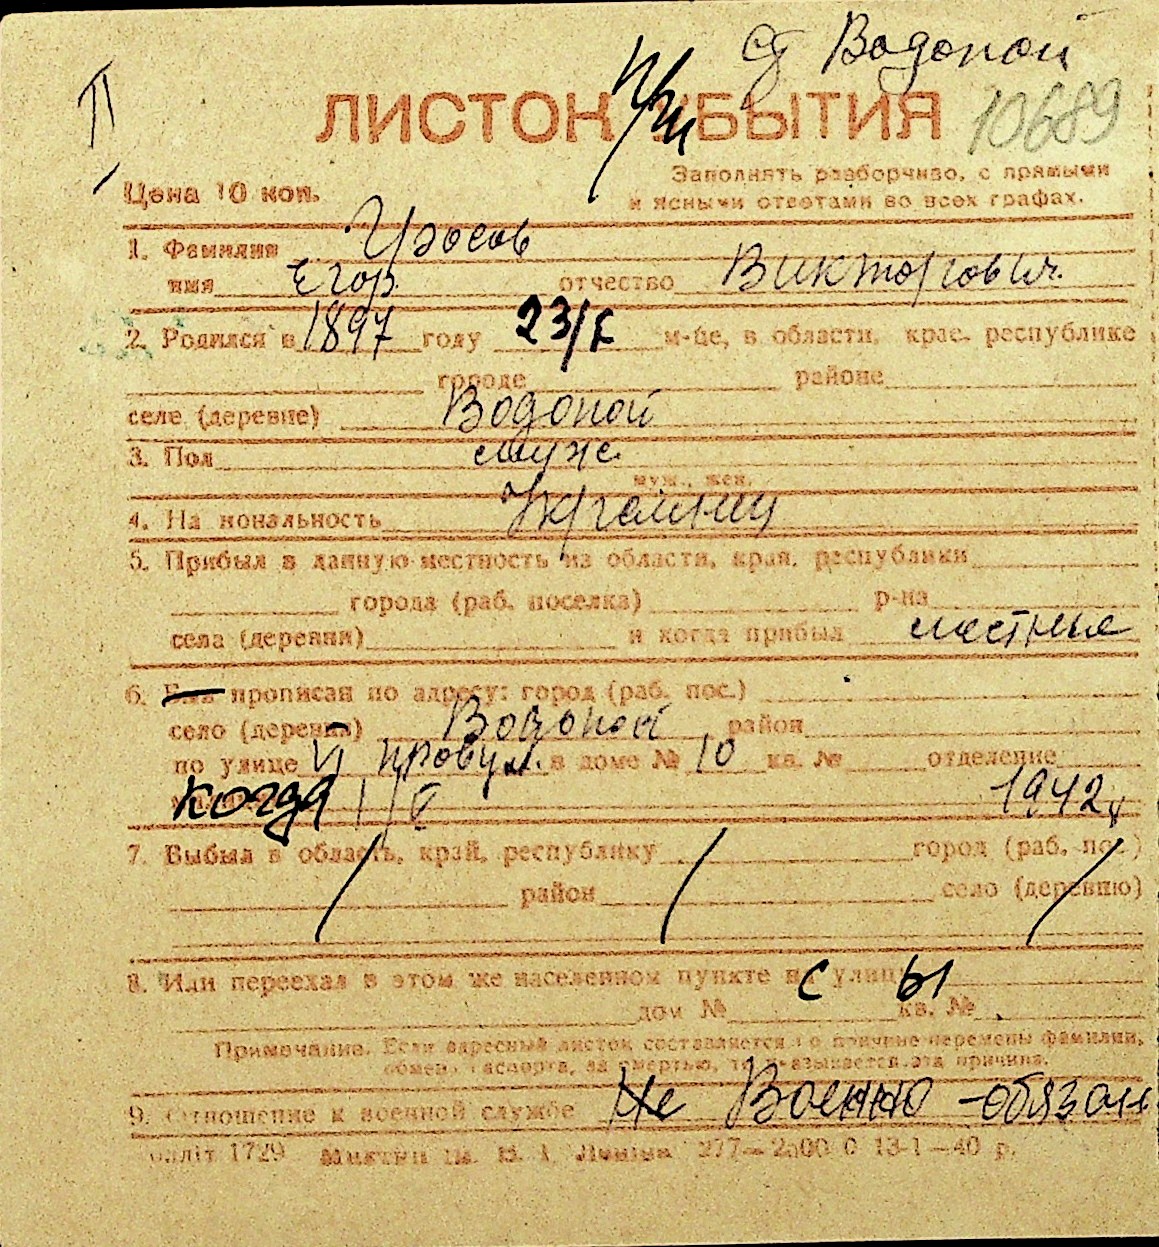 ст Водопой
П
ЛИСТОК УБЫТИЯ 10689
Цена 10 коп.
Заполнять разборчиво, с прямыми
и ясными ответами во всех графах.
1. Фамилия
имя Егор отчество Викторович
2. Родился в 1897 году 23/ м-це, в области, крае, республике
городе районе
селе (деревне) Водопой
3. Пол муж.
муж., жен.
4. Национальность Украинец
5. Прибыл в данную местность из области, края, республики
города (раб. поселка) р-на
села (деревни) и когда прибыл местные
6. Был прописан по адресу: город (раб. пос.)
село (деревня) Водопой район
по улице VI провул. в доме № 10 кв. № отделение
когда 1/V 1942
7. Выбыл в область, край, республику город (раб. пос.)
район село (деревню)
8. Или переехал в этом же населенном пункте с улицы
дом № кв. №
Примечание. Если адресный листок составляется по причине перемены фамилии,
обмена паспорта, за смертью, то указывается эта причина.
9. Отношение к военной службе Не Военно-обязан
1729 277—2500 0 13-1—40 р.